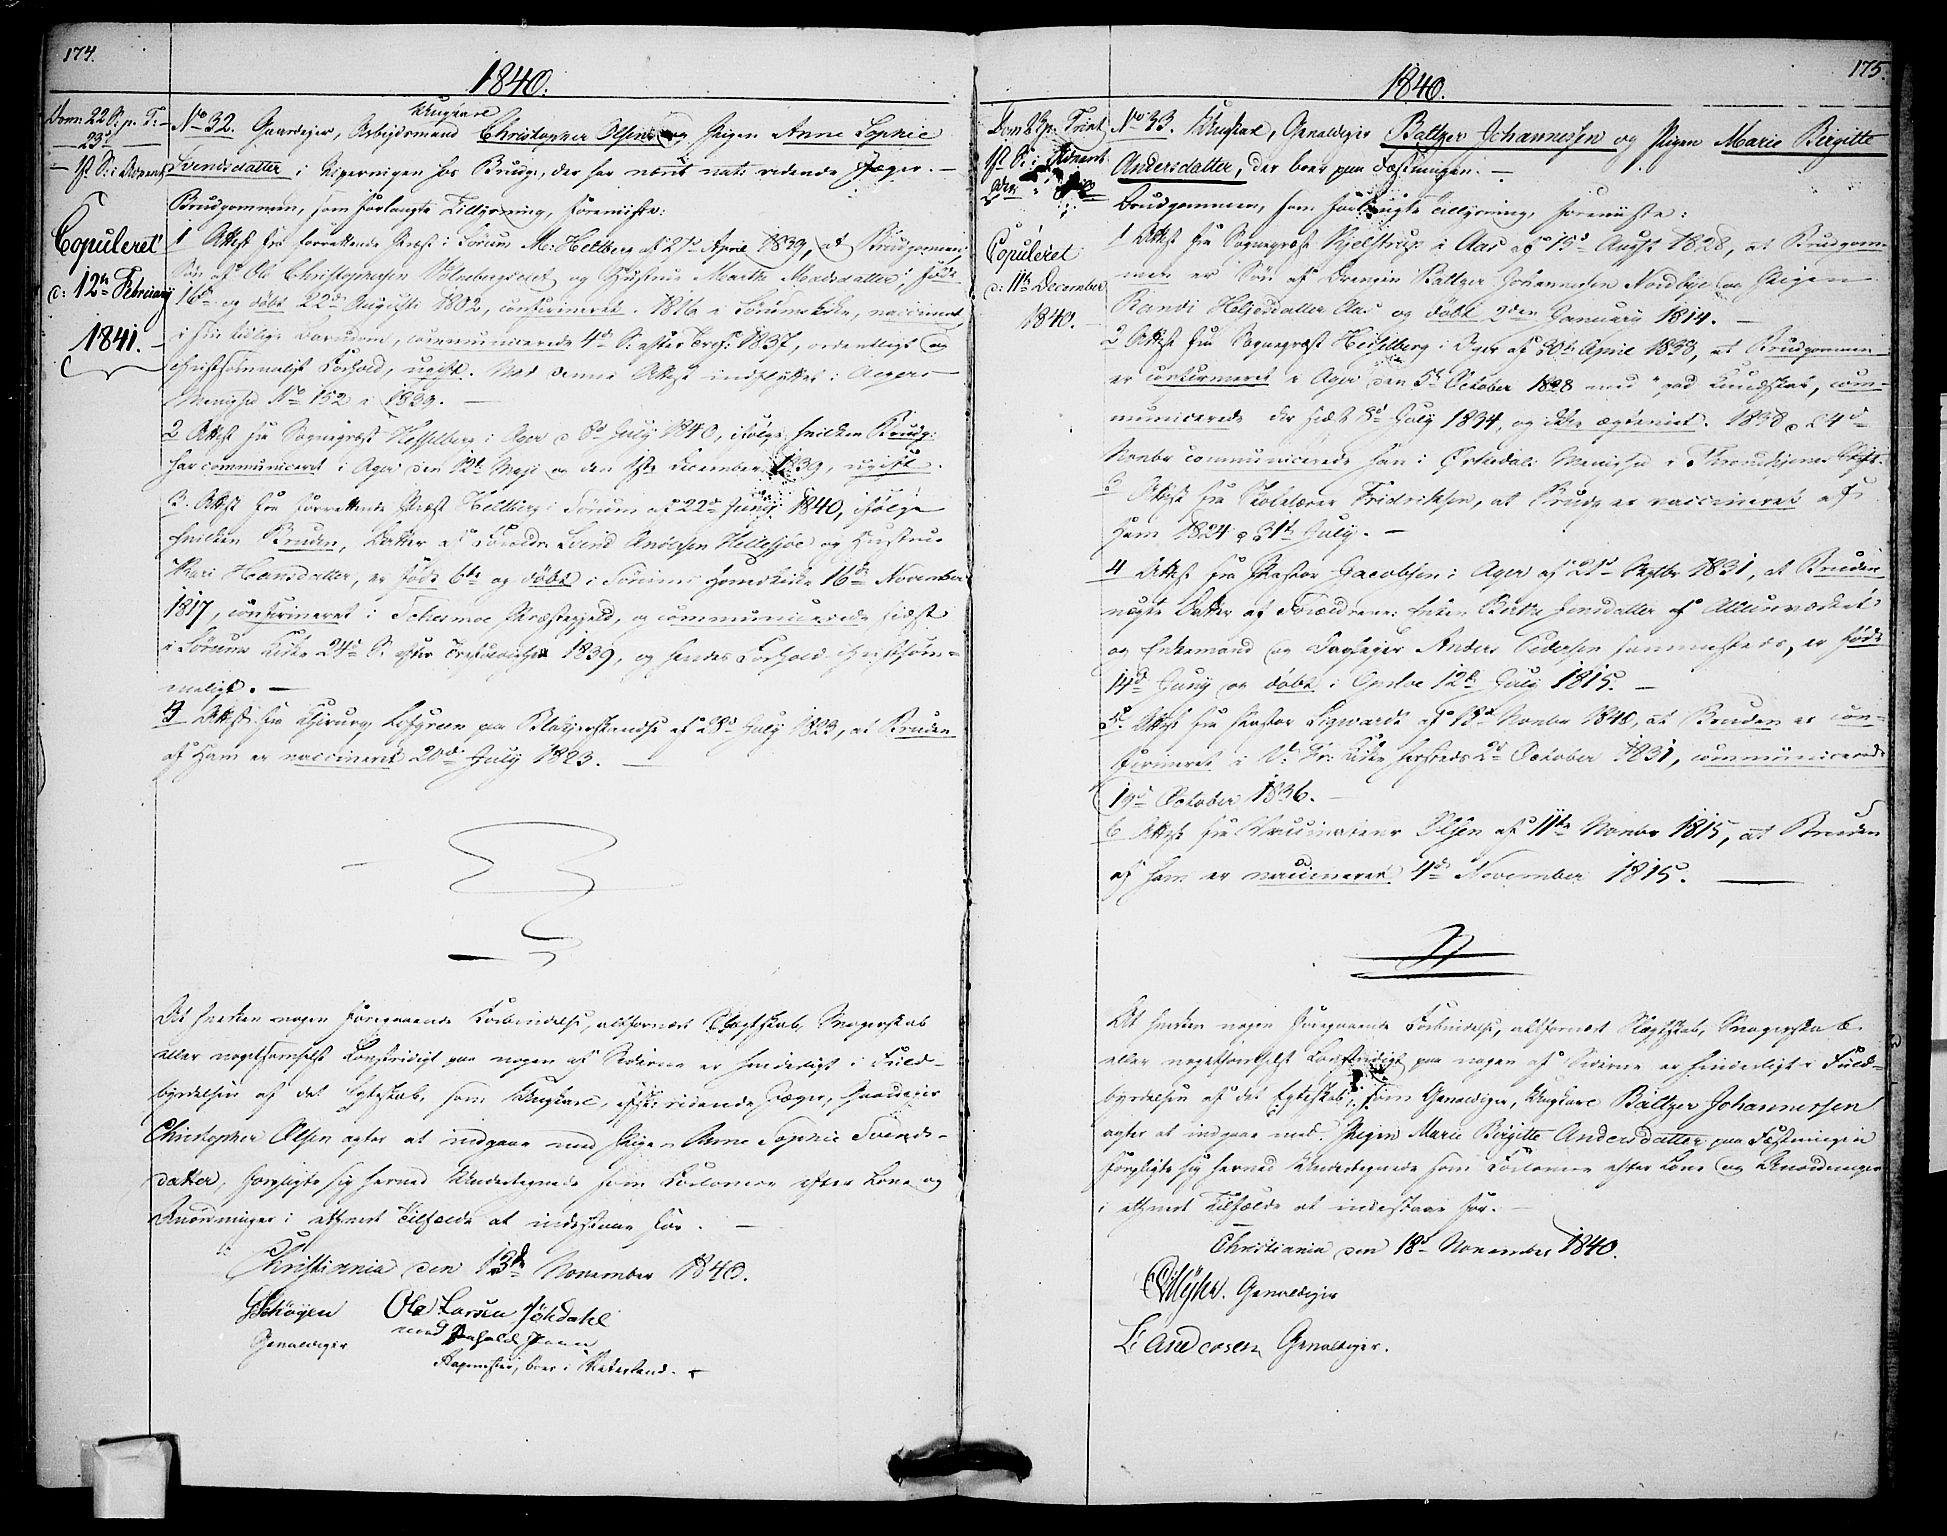 174.
1840.
Dom: 22 S: p. T:
23d
1ste S: i Advent
Copuleret
d: 12te Februarij
1841.
Ungkarl
No 32. Gaardejer, Arbeidsmand Christopher Olsen og Pigen Anne Sophie
Svendsdatter i Pipervigen hos Bruge, der har nænt natl. ridende Jæger.
Brudgommen, som forlangte Tillysning, foreviiste:
1 Attest fra forrettende Præst i Sørum M: Heltberg af 21de April 1839, at Brudgommen,
Søn af Ole Christophersen og Hustrue Marthe Madsdatter, født
16de og døbt 22de Augusti 1802, confirmeret 1816 i Sørums Kirke, vaccineret
i sin tidlige Barndom, communicerede 4de S: efter Tref: 1837, ordentligt og
christsømmeligt Forhold, ugift. Med denne Attest indflyttet i Aggers
Menighed No 152 i 1839.
2 Attest fra Sognepræst Hesselberg i Ager d 8de July 1840, ifølge hvilken Brudg:
har communiceret i Ager den 12te Maji og den 1ste December 1839, ugift.
3. Attest fra forrettende Præst Heltberg i Sørum af 22de Junij 1840, ifølge
hvilken Bruden, Datter af Forældre Svend Andersen Hellesjøe og Hustrue
Kari Hansdatter, er født 6te og døbt i Sørums Hovedkirke 16de November
1817, confirmeret i Præstegjeld, og communicerede sidst
i Sørums Kirke 24de S: efter Trefoldighed 1839, og hendes Forhold christsøm-
meligt.
4 Attest fra Chirurg Lofgreen paa Blakjerskandse af 28de July 1823, at Bruden
af Ham er vaccineret 20de July 1823.
At hverken nogen foregaaende Forbindelse, altfornært Slægtskab, Svogerskab
eller nogetsomhelst Lovstridigt paa nogen af Siderne er hinderligt i Fuld-
byrdelsen af det Egteskab, som Ungkarl, ridende Jæger, Gaardejer
Christopher Olsen agter at indgaae med Pigen Anne Sophie Svends-
datter, forpligte sig herved Undertegnede som Forlovere efter Lov og
Anordninger i ethvert Tilfælde at indestaae for.
Christiania den 13de November 1840.
Schøyen Ole Larsen
Gevaldiger med paaholden Penn
boer i Vaterland.
175.
1840.
Dom 23 p. Trint
1st S: i Advent
Copuleret
d: 11te December
1840.
No 33. Ungkarl, Gevaldiger Baltzer Johannesen og Pigen Marie Birgitte
Andersdatter, der boer paa Fæstningen.
Brudgommen, som forlangte Tillysning, foreviiste:
1 Attest fra Sognepræst Kjelstrup i Aas af 19de August 1828, at Brudgom-
men er Søn af Baltzer Johannesen Nordbye og Pigen
Randi Aas og døbt 2den January 1814.
2 Attest fra Sognepræst Hesselberg i Ager af 30te April 1838, at Brudgommen
er confirmeret i Ager den 5te October 1828 med god Kundskab, com-
municerede der sidst 8de July 1834, og ikke ægteviet. 1838 d 24de
Novbr communicerede han i Ørkedals Menighed i Throndhjems Stift.
3 Attest fra Skolelærer Fredriksen, at Brudg er vaccineret af
Ham 1824 d 31te July.
4 Attest fra Pastor Jacobsen i Ager af 21de Septbr 1831, at Bruden
uægte Datter af Forældrene: Enken Berthe Jensdatter af Allunværket
og Enkemand og Anders Pedersen sammesteds, er født
14de Juny og døbt i Opsloe 12te July 1815.
5 Attest fra Pastor Sigwardt af 18de Novbr 1840, at Bruden er con-
firmeret i V: Fr: Kirke hersteds 2de October 1831, communicerede
19de October 1836.
6 Attest fra Vaccinateur Olsen af 11te Novbr 1815, at Bruden
af ham er vaccineret 4de November 1815.
At hverken nogen foregaaende Forbindelse, altfornært Slægtskab, Svogerskab
eller nogetsomhelst Lovstridigt paa nogen af Siderne er hinderligt i Fuld-
byrdelsen af det Egteskab, som Gevaldiger, Ungkarl Baltzer Johannessen
agter at indgaae med Pigen Marie Birgitte Andersdatter paa Fæstningen
forpligte sig herved Undertegnede som Forlovere efter Lov og Anordninger
i ethvert Tilfælde at indestaae for.
Christiania den 18de November 1840.
Gevaldiger
L: Andersen, Gevaldiger.